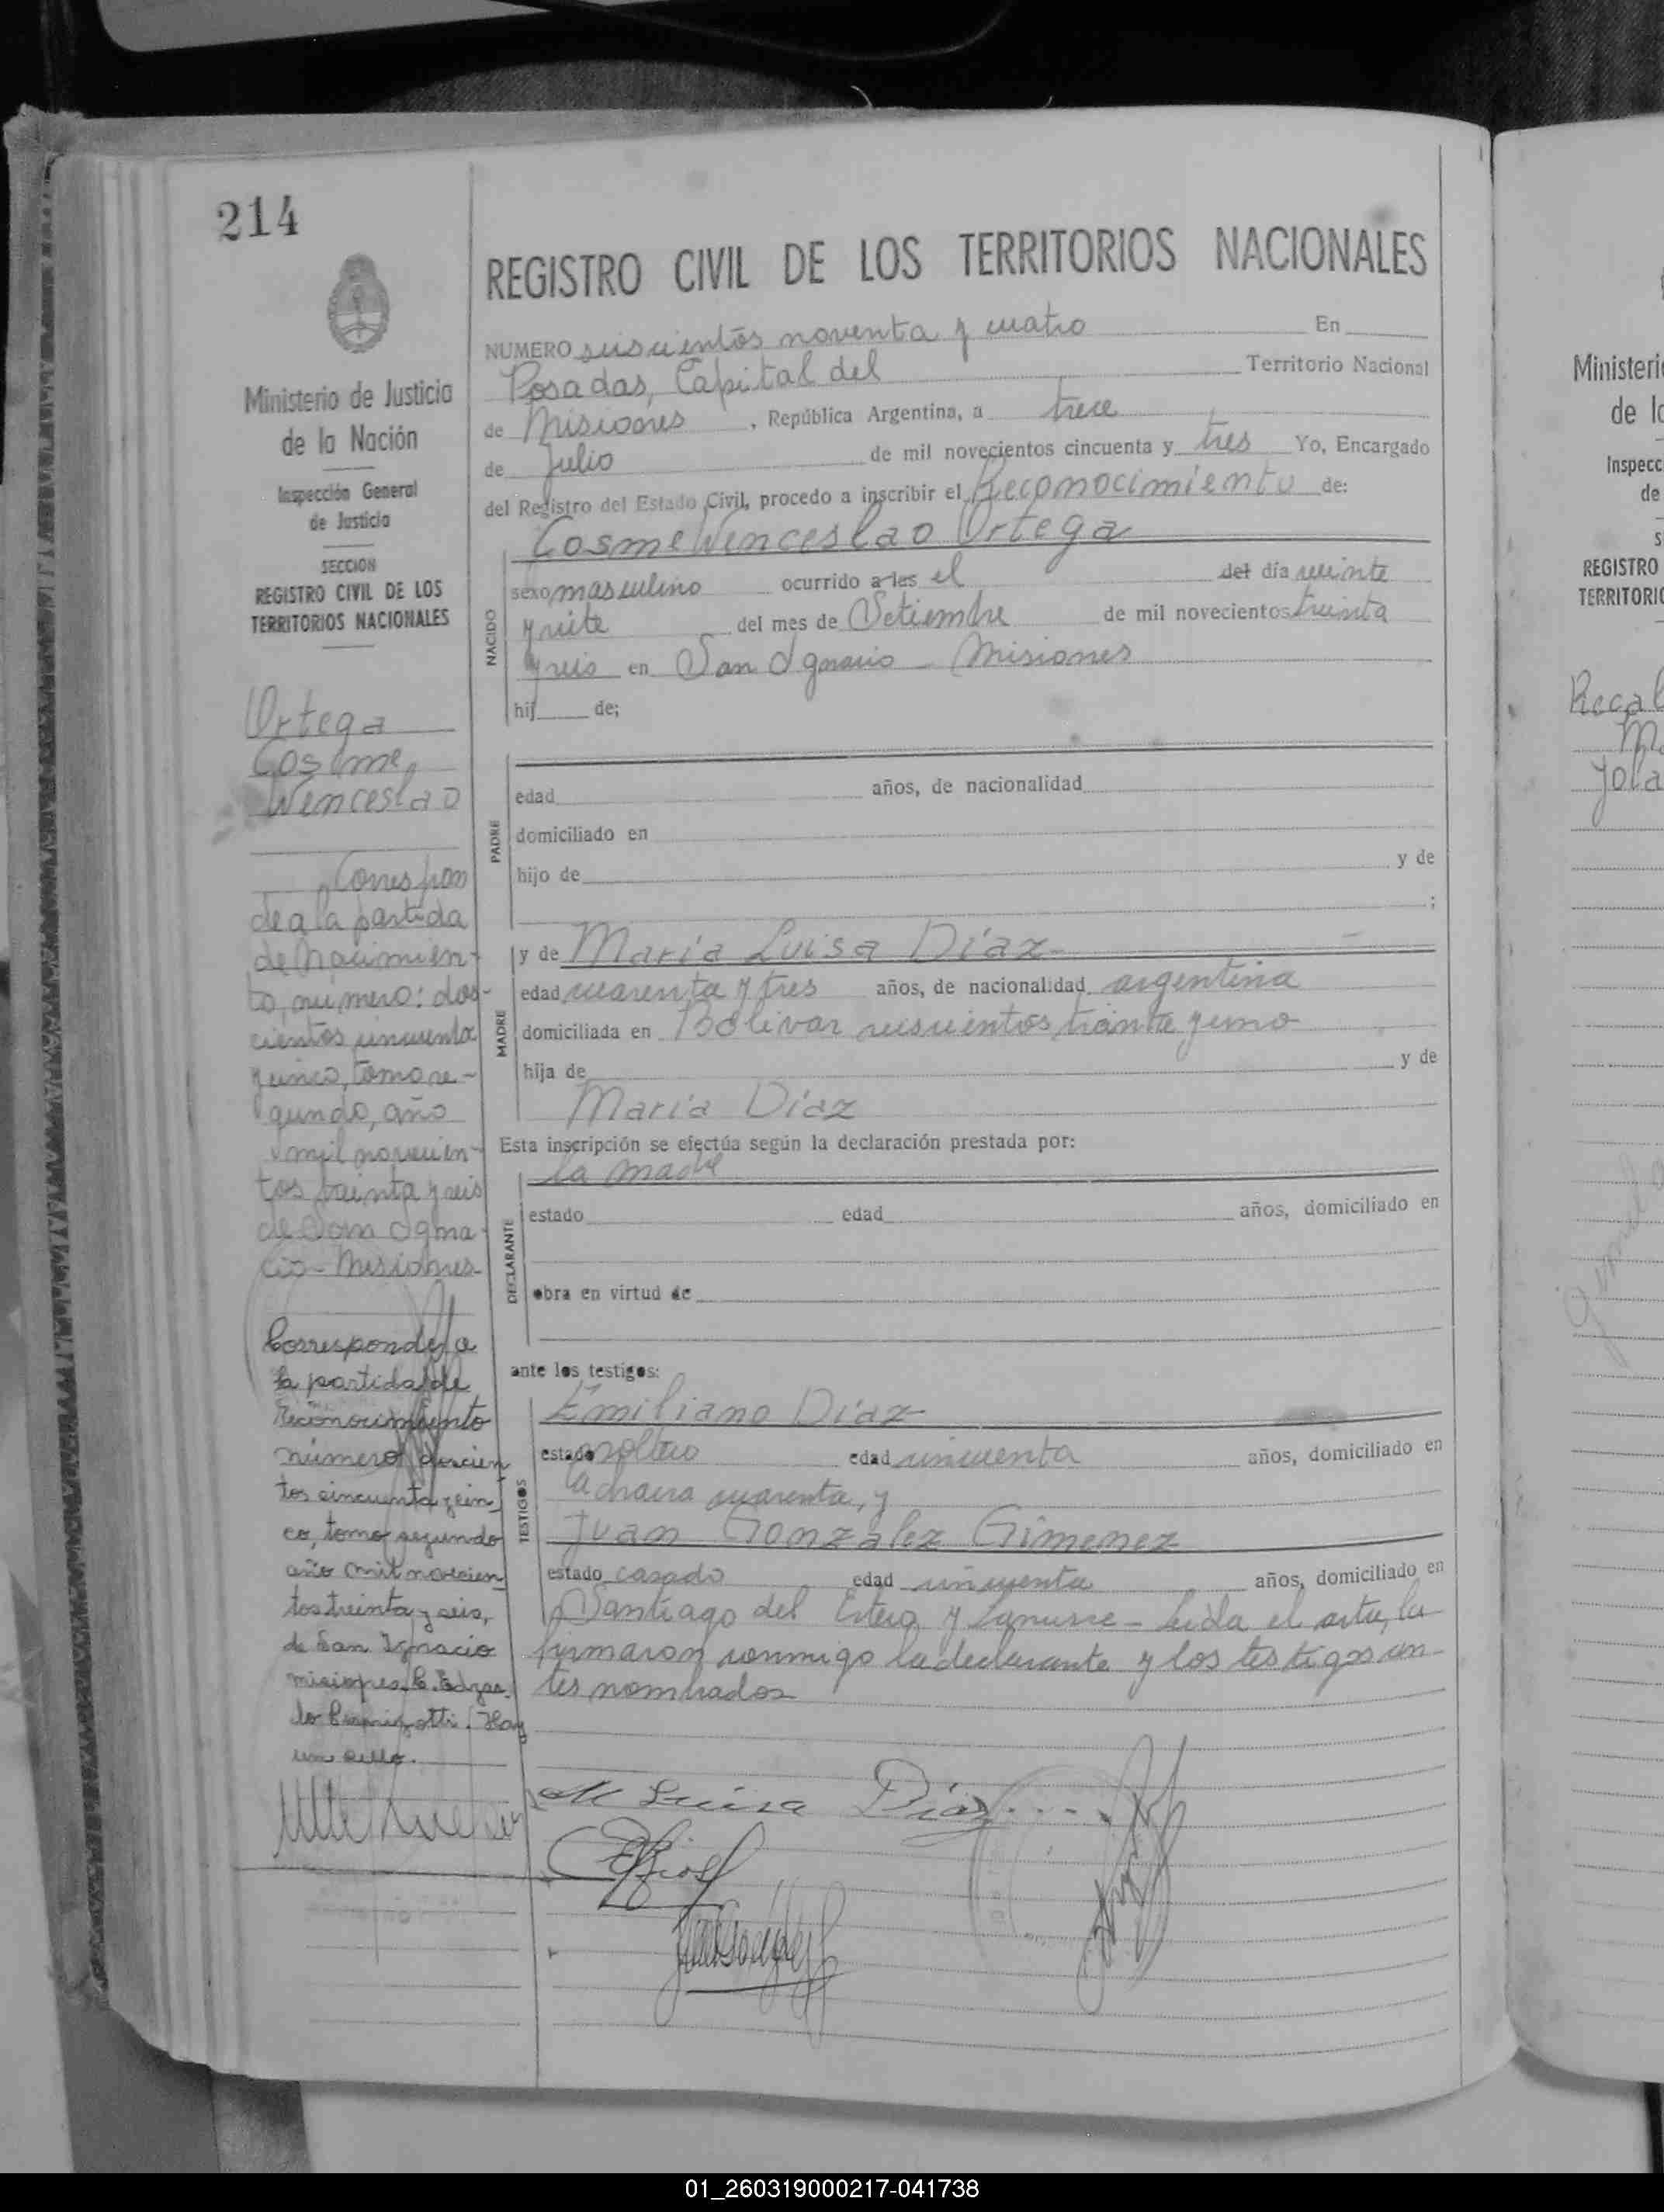 214
REGISTRO CIVIL DE LOS TERRITORIOS NACIONALES
NUMERO seiscientos noventa y cuatro En
Posadas, Capital del Territorio Nacional
de Misiones, República Argentina, a trece
de Julio de mil novecientos cincuenta y tres Yo, Encargado
del Registro del Estado Civil, procedo a inscribir el Reconocimiento de:
Cosme Wenceslao Ortega
NACIDO
sexo masculino ocurrido a las el del día veinte
y siete del mes de Setiembre de mil novecientos treinta
y seis en San Ignacio - Misiones
hij de;
PADRE
edad años, de nacionalidad
domiciliado en
hijo de y de
;
MADRE
y de María Luisa Díaz
edad cuarenta y tres años, de nacionalidad argentina
domiciliada en Bolivar seiscientos treinta y uno
hija de y de
María Díaz
Esta inscripción se efectúa según la declaración prestada por:
la madre
DECLARANTE
estado edad años, domiciliado en
obra en virtud de
ante los testigos:
TESTIGOS
Emiliano Díaz
estado soltero edad cincuenta años, domiciliado en
la chacra cuarenta, y
Juan Gonzalez Gimenez
estado casado edad cincuenta años, domiciliado en
Santiago del Estero y Lanusse - Leida el acta, la
firmaron conmigo la declarante y los testigos an-
tes nombrados
M Luisa Díaz
Ministerio de Justicia
de la Nación
Inspección General
de Justicia
SECCION
REGISTRO CIVIL DE LOS
TERRITORIOS NACIONALES
Ortega
Cosme
Wenceslao
Correspon
de a la partida
de Nacimien-
to, numero: dos-
cientos cincuenta
y cinco, tomo se-
gundo, año
mil novecien-
tos treinta y seis
de San Igna-
cio - Misiones
Corresponde a
la partida de
Reconocimiento
número doscien
tos cincuenta y cin
co, tomo segundo
año mil novecien
tos treinta y seis,
de San Ignacio
misiones.
Hay
un sello.
Ministeri
de l
Inspecc
de
S
REGISTRO
TERRITORIO
Recal
M
Yola
01_260319000217-041738